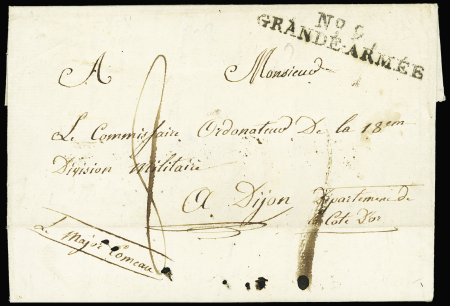 No 9
GRANDE-ARMÉE
A Monsieur
Le Commissaire Ordonateur De la 18em
Division Militaire
A Dijon Département de
la Cote D'or
Le Major Comeau